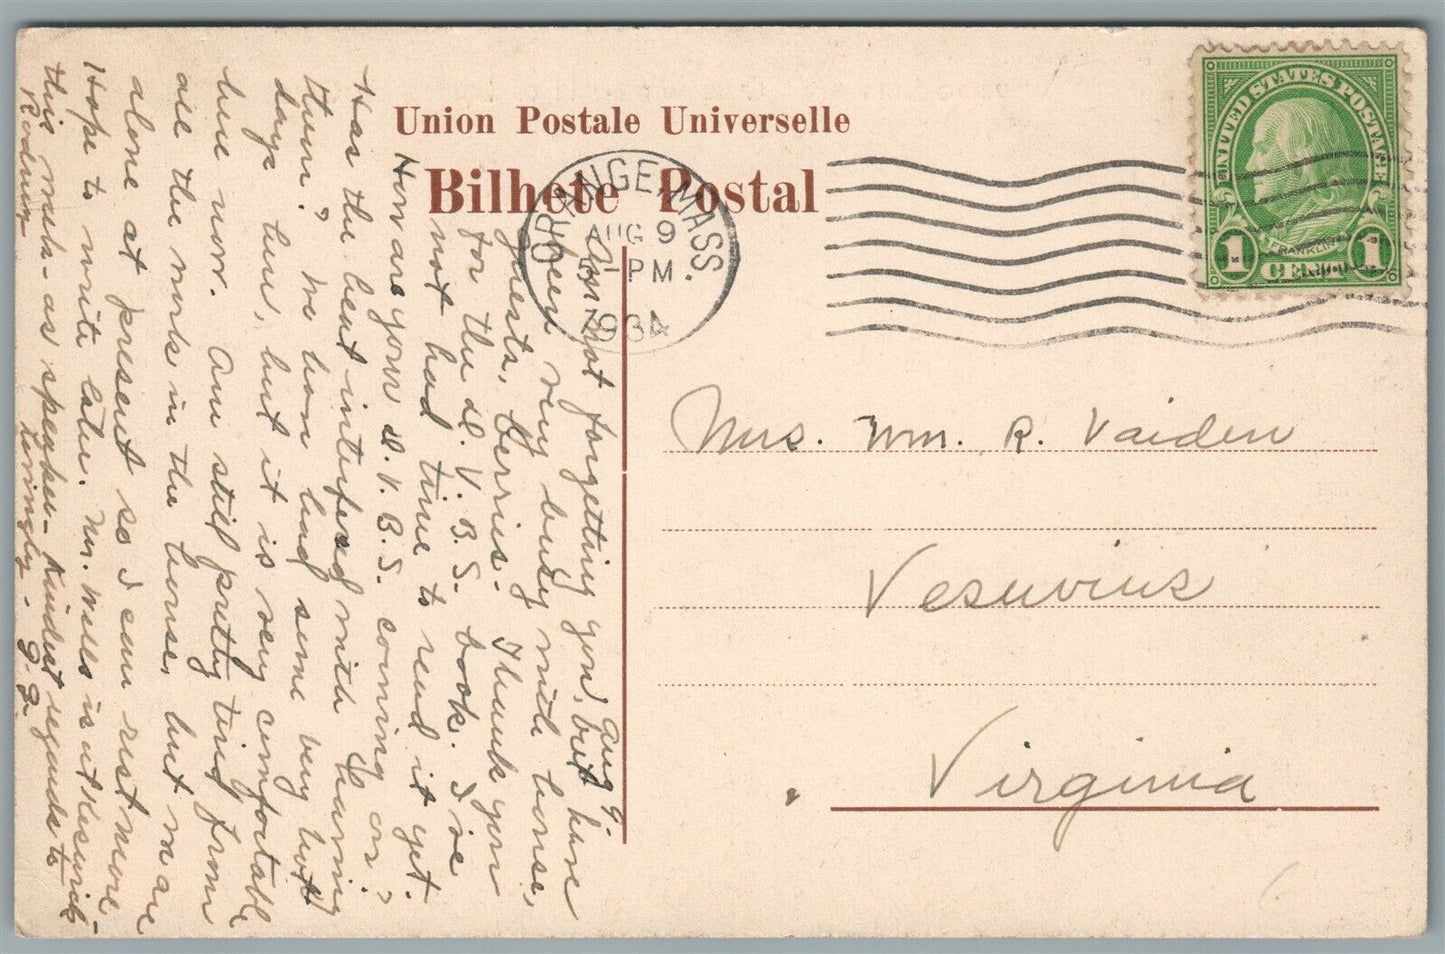 Union Postale Universelle
Bilhete Postal
ORANGE, MASS.
AUG 9
5 - PM
1934
UNITED STATES POSTAGE
FRANKLIN
1 CENT 1
Mrs. Wm. R. Vaiden
Vesuvius
Virginia
Aug. 9.
Am not forgetting you, but have
been very busy with house,
guests, berries. Thank you
for the D. V. B. S. book. I've
not had time to read it yet.
How are your D. V. B. S. coming on?
Has the heat interfered with having
them? We have had some very hot
days here, but it is very comfortable
here now. Am still pretty tired from
all the work in the house, but am
alone at present so I can rest more.
Hope to write later. Mr. Wells is at
this week - as speaker - Kindest regards to
Rodney
Lovingly - G. G.